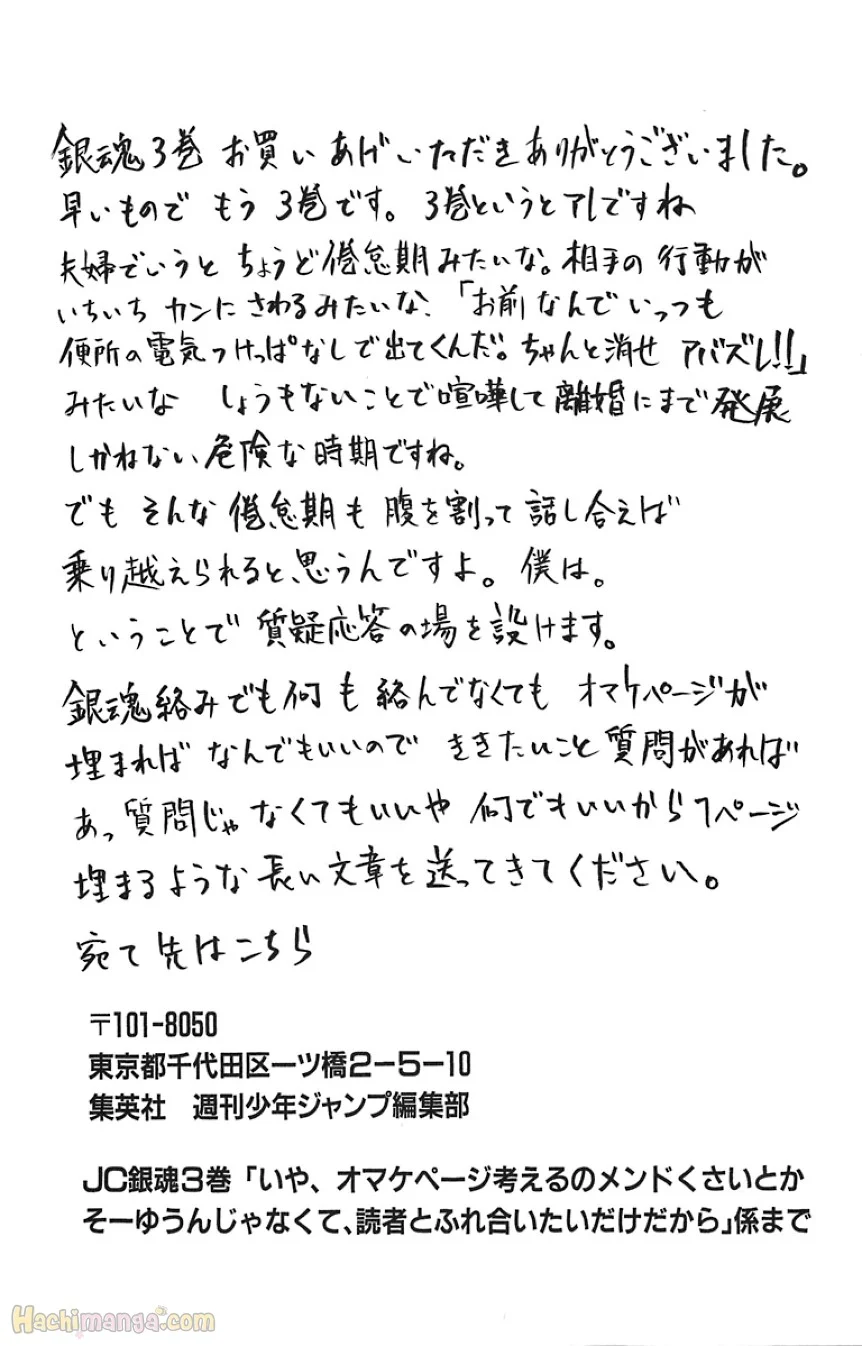 銀魂3巻 お買いあげいただきありがとうございました。
早いもので もう 3巻です。3巻というとアレですね
夫婦でいうと ちょうど倦怠期みたいな。相手の行動が
いちいち カンにさわるみたいな、「お前なんで いっつも
便所の電気つけっぱなしで出てくんだ。ちゃんと消せ アバズレ!!」
みたいな しょうもないことで喧嘩して離婚にまで発展
しかねない危険な時期ですね。
でも そんな 倦怠期も 腹を割って話し合えば
乗り越えられると思うんですよ。僕は。
ということで 質疑応答の場を設けます。
銀魂絡みでも何も絡んでなくても オマケページが
埋まれば なんでもいいので ききたいこと質問があれば
あっ質問じゃなくてもいいや 何でもいいから1ページ
埋まるような長い文章を送ってきてください。
宛て先はこちら
〒101-8050
東京都千代田区一ツ橋2-5-10
集英社 週刊少年ジャンプ編集部
JC銀魂3巻「いや、オマケページ考えるのメンドくさいとか
そーゆうんじゃなくて、読者とふれ合いたいだけだから」係まで
Hachimanga.com